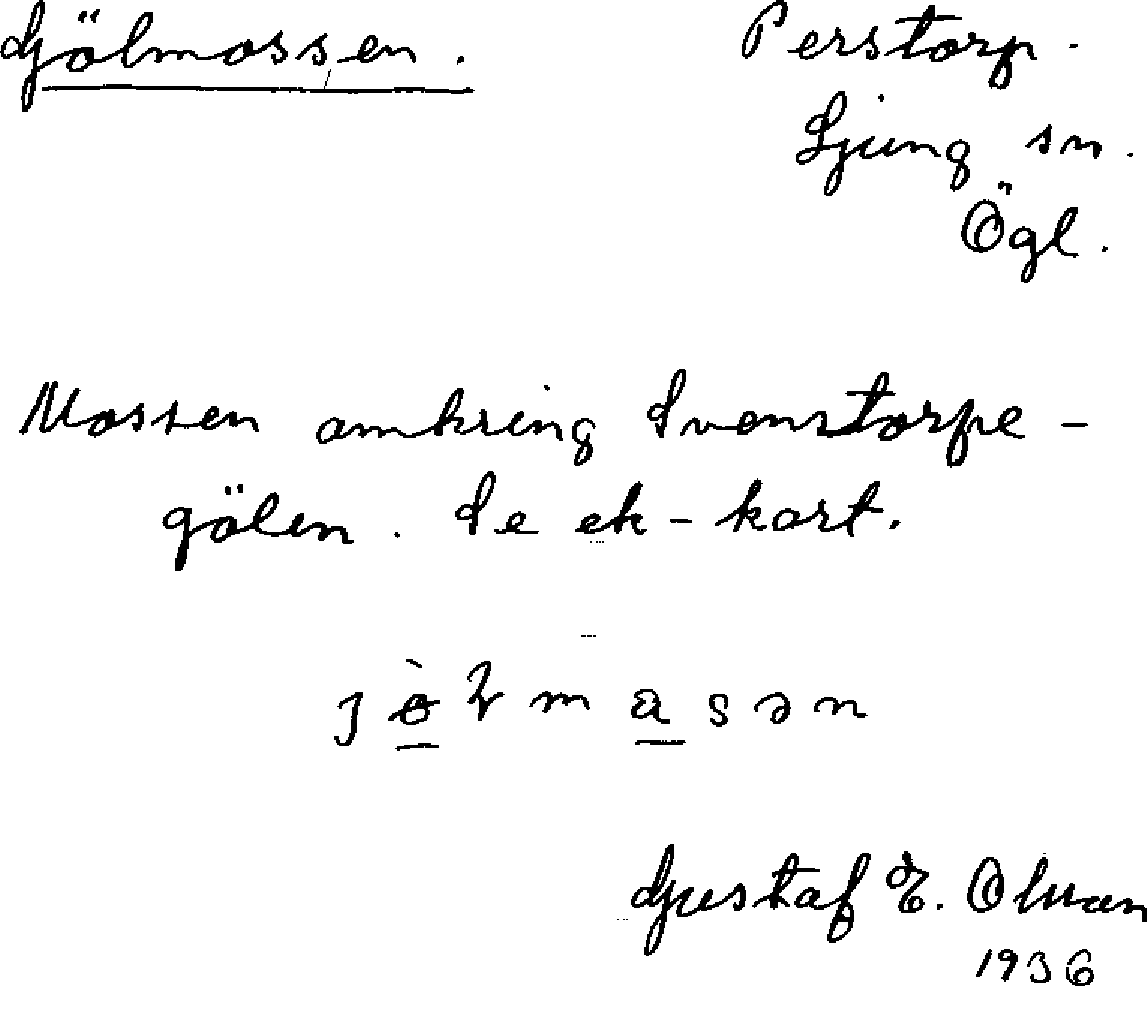 Gölmossen.
Perstorp.
Ljung sn.
Ögl.
Mossen omkring Svenstorpe-
gölen. Se ek-kart.
Gustaf E. Olman
1936